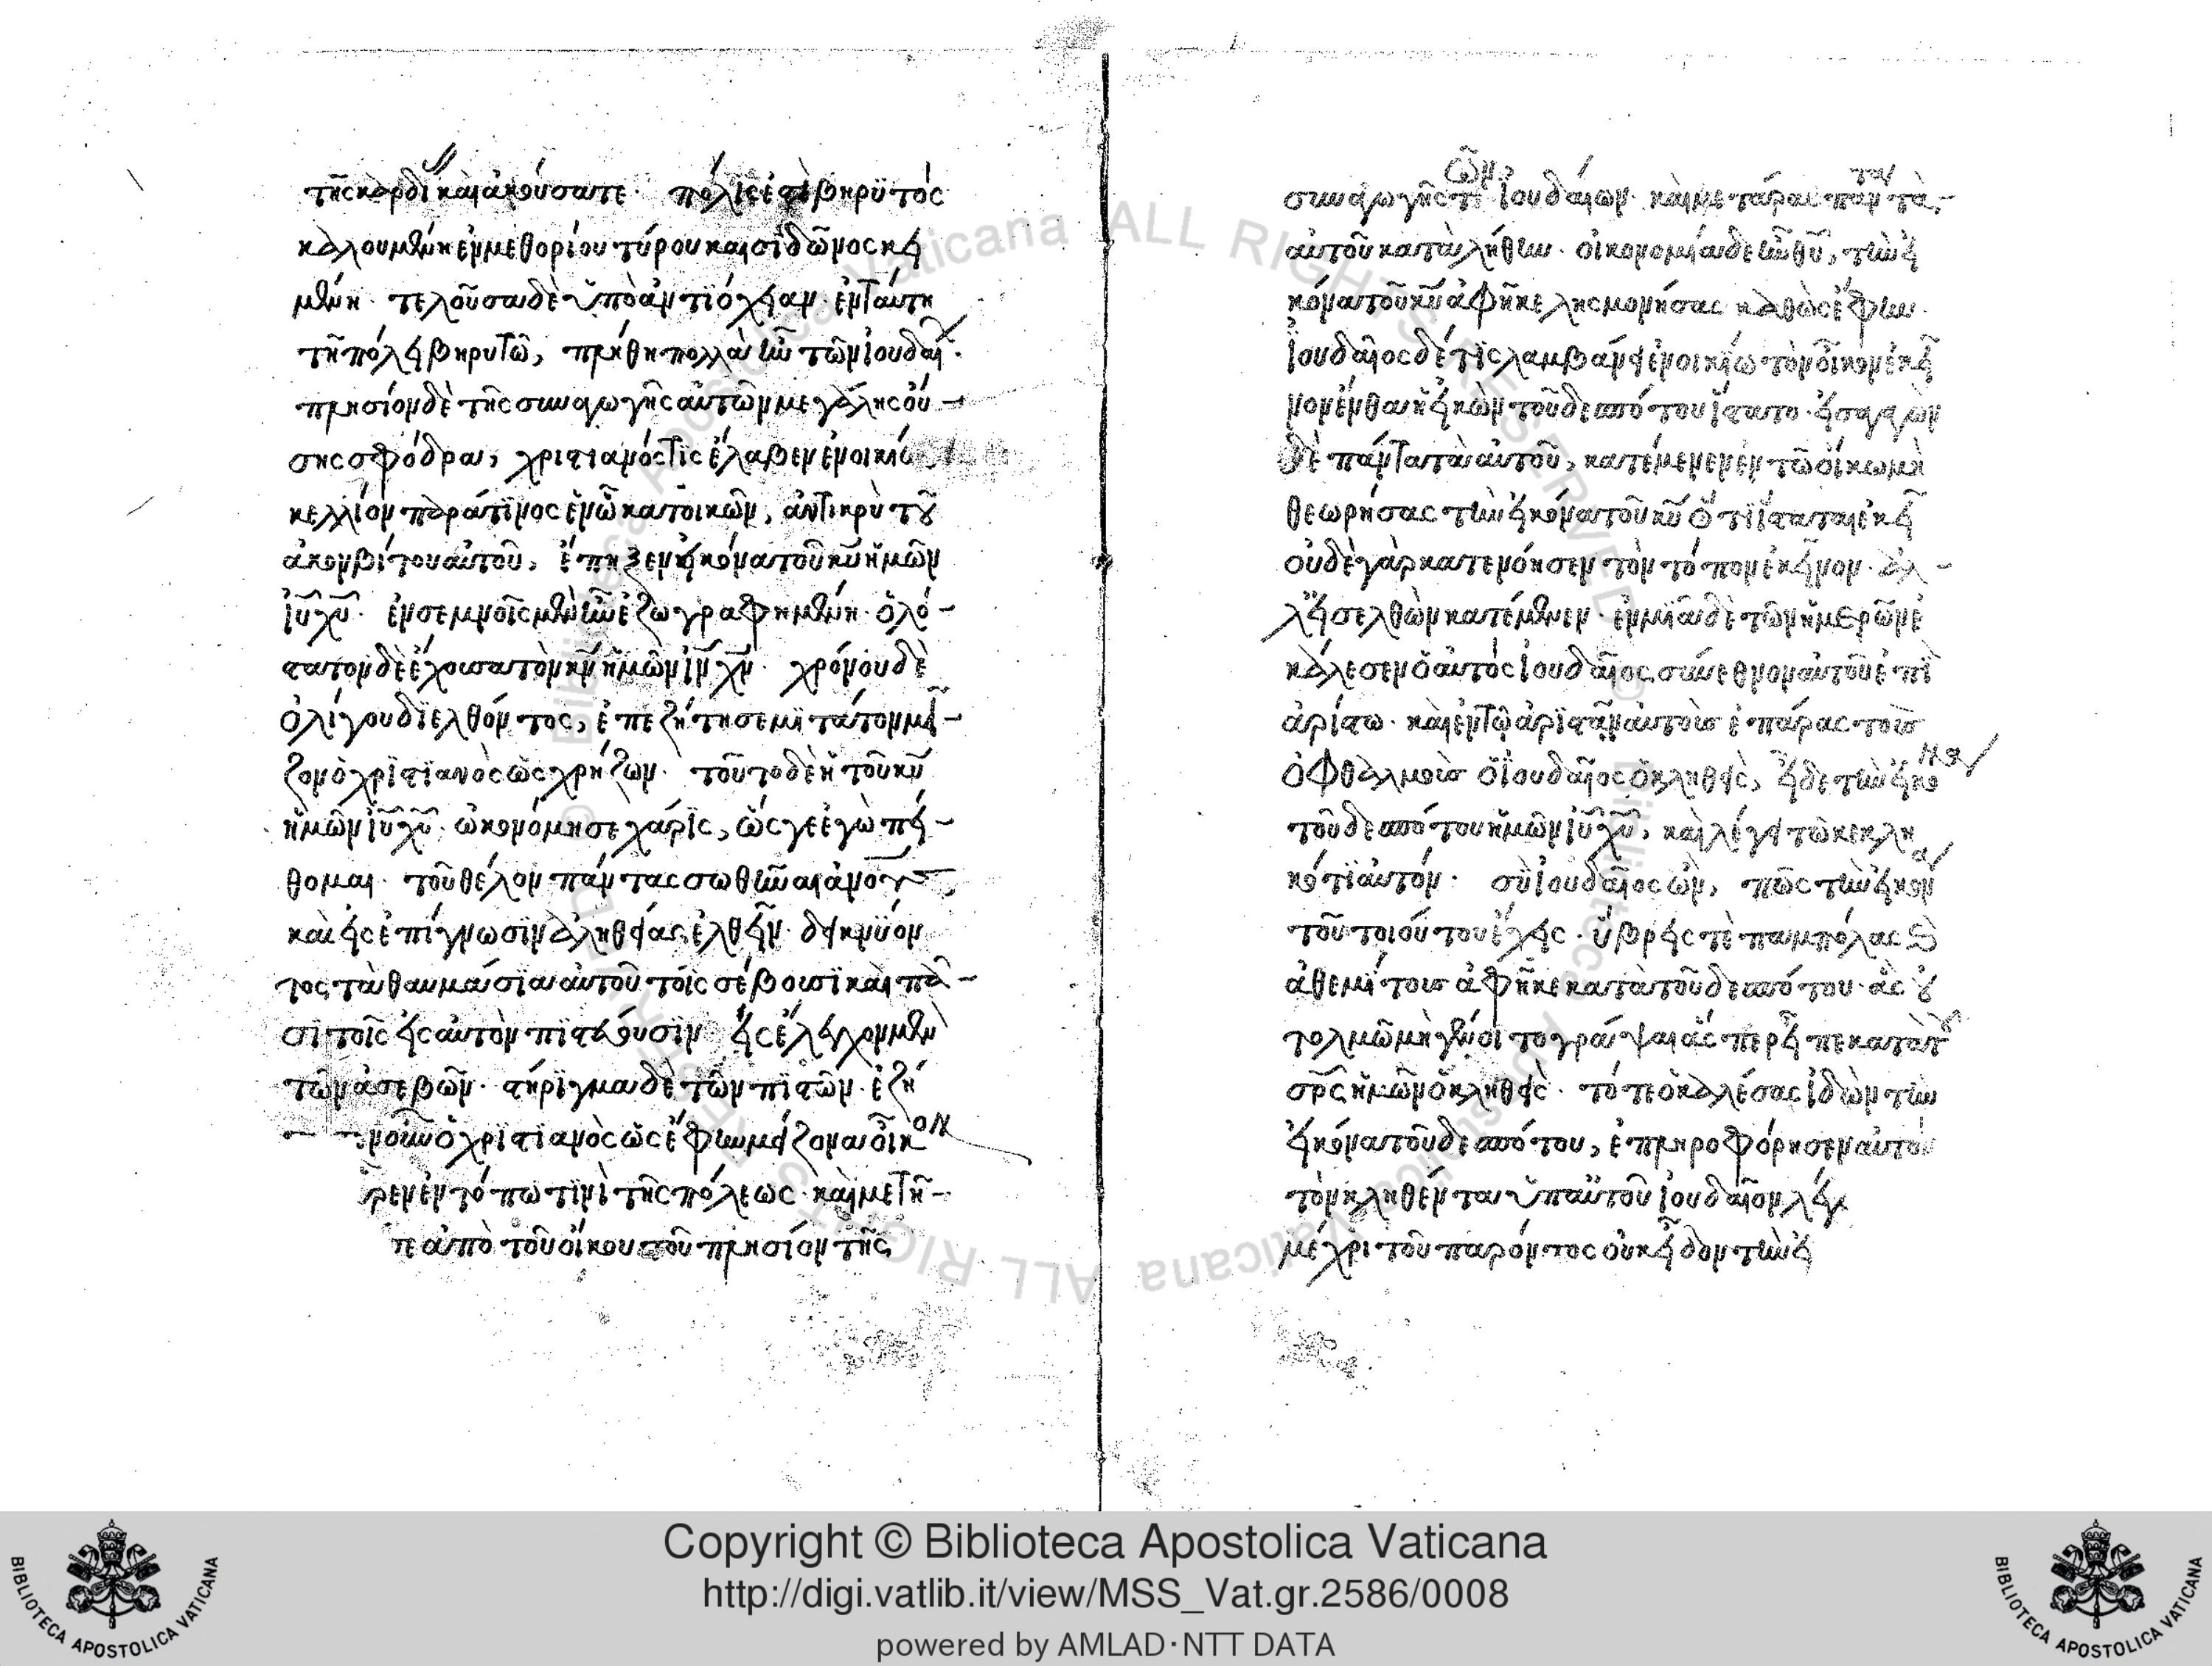 τῆς καρδι καὶ ἀκούσατε· πόλις ἐστὶ βηρϋτὸς
καλουμένη ἐν μεθορίου τύρου καὶ σιδῶνος κει
μένη· τελοῦσα δὲ ὑπὸ ἀντιόχειαν· ἐν ταύτη
τῆ πόλει βηρυτῶ, πλήθη πολλὰ ἦν τῶν ἰουδαί·
πλησίον δὲ τῆς συναγωγῆς αὐτῶν μεγάλης οὔ-
σης σφόδρα, χριστιανός τις ἔλαβεν ἐνοικίω
κελλίον παρά τινος ἐν ὧ κατοικῶν, ἀντικρὺ τοῦ
ἀκομβίτου αὐτοῦ, ἔπηξεν εἰκόνα τοῦ κυ ἡμῶν
ἰυ χυ· ἐν σεμνοῖς μὲν ἦν ἐζωγραφημένη· ὁλό-
στατον δὲ ἔχουσα τὸν κν ἡμῶν ιν χν· χρόνου δὲ
ὀλίγου διελθόντος, ἐπεζήτησε μϊτάτον μεῖ-
ζον ὁ χριστϊανὸς ὡς χρήζων· τοῦτο δὲ ἡ τοῦ κυ
ἡμῶν ιυ χυ ὠκονόμησε χάρϊς, ὥς γε ἐγὼ πεί-
θομαι· τοῦ θέλον πάντας σωθῆναι ἀνους
καὶ εἰς ἐπίγνωσϊν ἀληθείας ἐλθεῖν· δεικνϋόν
τος τὰ θαυμάσϊα αὐτοῦ τοῖς σέβουσϊ καὶ πᾶ-
σϊ τοῖς εἰς αὐτὸν πϊστεύουσϊν εἰς ἔλεγχον μὲν
τῶν ἀσεβῶν· στήρϊγμα δὲ τῶν πϊστῶν· ἐζή
νουν ὁ χριστϊανὸς ὡς ἔφην μείζονα οἶκον
ρεν ἐν τόπω τϊνὶ τῆς πόλεως· καὶ μετῆ-
πε ἀπὸ τοῦ οἴκου τοῦ πλησίον τῆς
συναγωγῆς τῶν ἰουδαίων· καὶ μετάραι πάντα τὰ-
αὐτοῦ κατὰ λήθην· οἰκονομία δὲ ἦν θυ, τὴν εἰ
κόνα τοῦ κυ ἀφῆκε λησμονήσας καθὼς ἔφην·
ἰουδαῖος δέ τϊς λαμβάνει ἐνοικίω τὸν οἶκον ἐκεῖ
νον ἔνθα ἡ εἰκὼν τοῦ δεσπότου ἵστατο· εἰσαγαγὼν
δὲ πάντα τὰ αὐτοῦ, κατέμενεν ἐν τῶ οἴκω μὴ
θεωρήσας τὴν εἰκόνα τοῦ κυ ὅτϊ ἵσταται ἐκεῖ
οὐδὲ γὰρ κατενόησεν τὸν τόπον ἐκεῖνον· ἀλ-
λ' εἰσελθὼν κατέμενεν· ἐν μϊᾶ δὲ τῶν ἡμερῶν ἐ
κάλεσεν ὁ αὐτὸς ἰουδαῖος συνεθνον αὐτοῦ ἐπὶ
ἀρίστω· καὶ ἐν τῶ ἀρϊστᾶν αὐτοὺς ἐπάρας τοὺς
ὀφθαλμοὺς ὁ ἰουδαῖος ὁ κληθεὶς, εἶδε τὴν εἰκόνα
τοῦ δεσπότου ἡμῶν ιυ χυ, καὶ λέγει τῶ κεκλη
κότϊ αὐτόν· σὺ ἰουδαῖος ὢν, πῶς τὴν εἰκόνα
τοῦ τοιούτου ἔχεις· ὕβρεις τὲ παμπόλας καὶ
ἀθεμίτους ἀφῆκε κατὰ τοῦ δεσπότου· ἃς οὐ
τολμῶ μὴ γένοιτο γράψαι ἅσπερ εἶπε κατὰ τοῦ
σρς ἡμῶν ὁ κληθεὶς· τότε ὁ καλέσας ἰδὼν τὴν
εἰκόνα τοῦ δεσπότου, ἐπληροφόρησεν αὐτὸν
τὸν κληθέντα ὑπ' αὐτοῦ ἰουδαῖον λέγει
μέχρι τοῦ παρόντος οὐκ εἶδον τὴν εἰ
Copyright © Biblioteca Apostolica Vaticana
http://digi.vatlib.it/view/MSS_Vat.gr.2586/0008
powered by AMLAD·NTT DATA